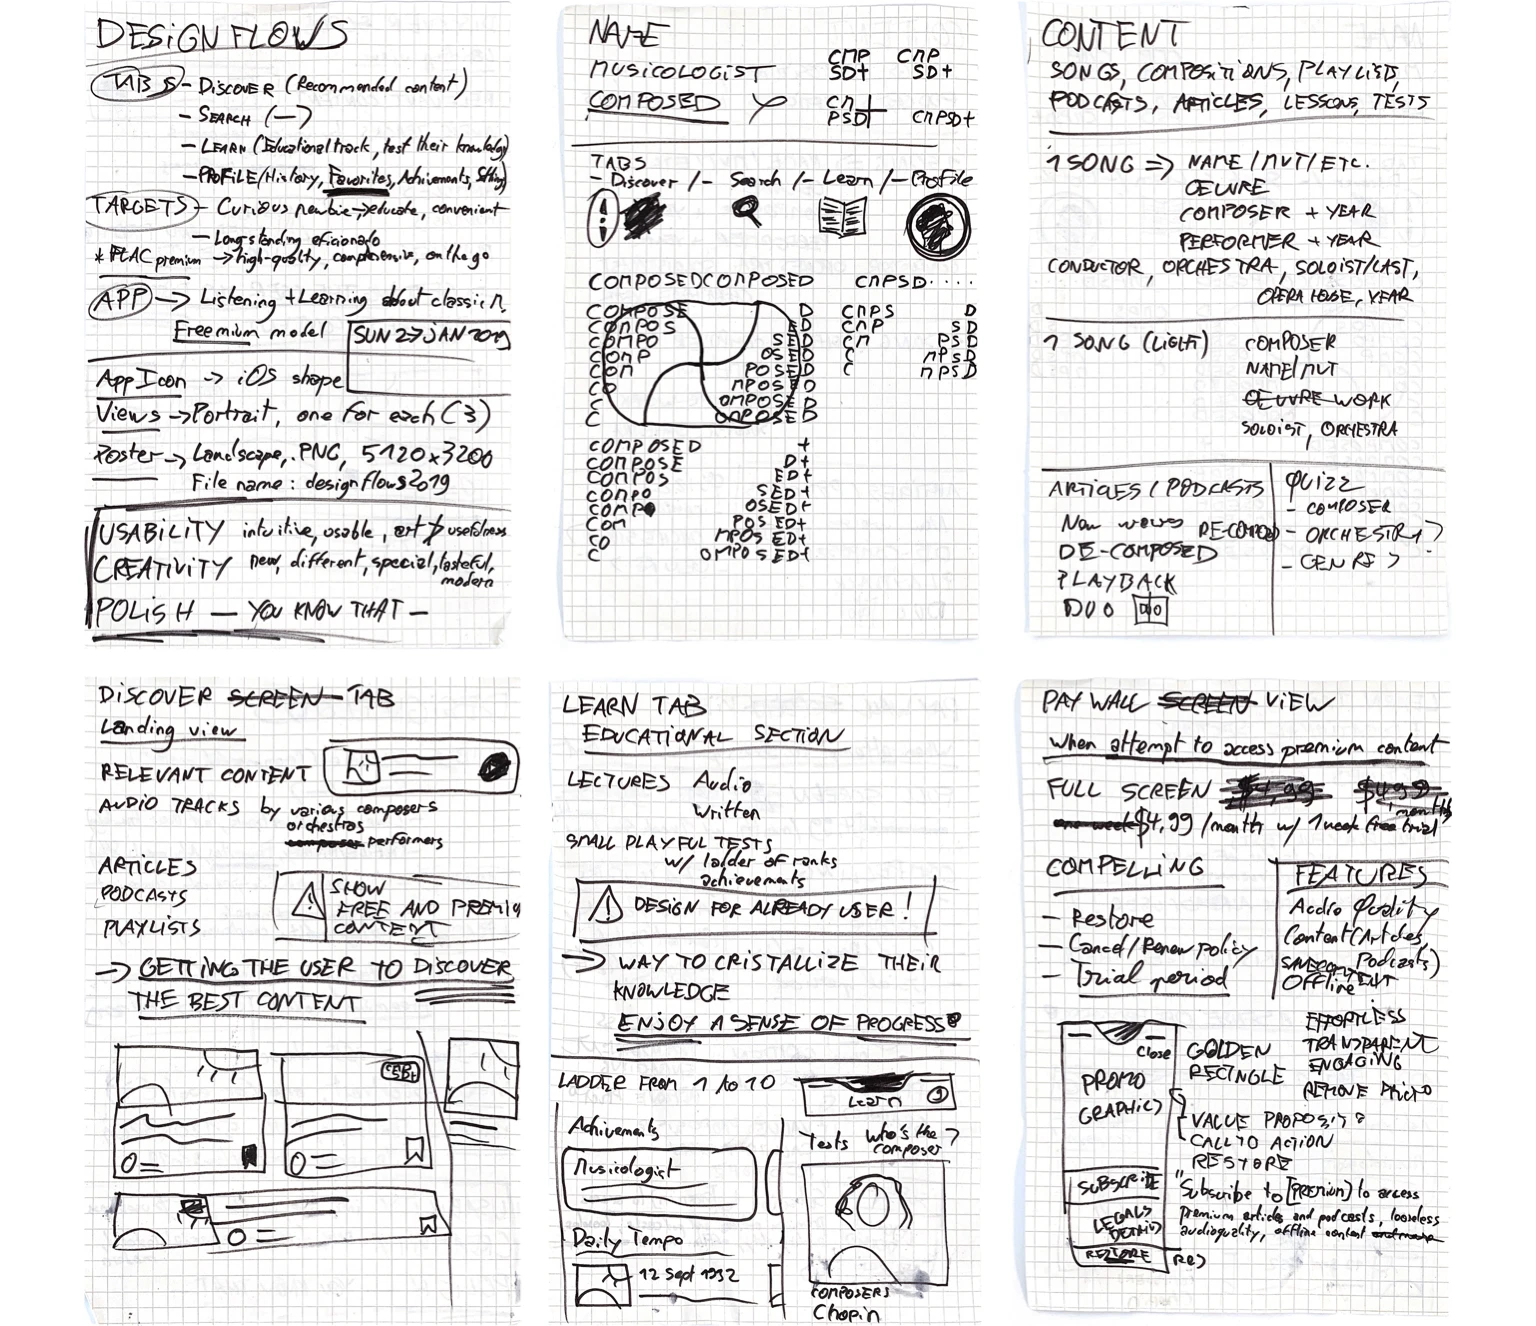 DESIGN FLOWS
TABS - DISCOVER (Recommended content)
- SEARCH (—)
- LEARN (Educational track, test their knowledge)
- PROFILE/History, Favorites, Achivements, Setting)
TARGETS - Curious newbie → educate, convenient
- Longstanding aficionado
* FLAC premium → high-quality, comprehensive, on the go
APP → Listening + Learning about classic M.
Freemium model
SUN 27 JAN 2019
App Icon → iOS shape
Views → Portrait, one for each (3)
Poster → Landscape, .PNG, 5120x3200
File name: designflows2019
USABILITY intuitive, usable, art usefulness
CREATIVITY new, different, special, tasteful, modern
POLISH — YOU KNOW THAT —
NAME
MUSICOLOGIST
COMPOSED
CMP
SD+
CMP
SD+
CM
PSD+
CMPSD+
TABS
- Discover / - Search / - Learn / - Profile
COMPOSEDCOMPOSED CMPSD....
COMPOSE D CMPS D
COMPOS ED CMP SD
COMPO SED CM PSD
COMP OSED C MPSD
COM POSED C MPSD
CO MPOSED
C OMPOSED
C OMPOSED
COMPOSED +
COMPOSE D+
COMPOS ED+
COMPO SED+
COMP OSED+
COM POSED+
CO MPOSED+
C OMPOSED+
CONTENT
SONGS, COMPOSITIONS, PLAYLISTS,
PODCASTS, ARTICLES, LESSONS, TESTS
1 SONG ⇒ NAME/MVT/ETC.
OEUVRE
COMPOSER + YEAR
PERFORMER + YEAR
CONDUCTOR, ORCHESTRA, SOLOIST/CAST,
OPERA HOUSE, YEAR
1 SONG (LIGHT) COMPOSER
NAME/MVT
OEUVRE WORK
SOLOIST, ORCHESTRA
ARTICLES / PODCASTS
New waves RE-COMPOSED
DE-COMPOSED
PLAYBACK
DUO
QUIZZ
- COMPOSER
- ORCHESTRA?
- GENRE?
DISCOVER SCREEN TAB
Landing view
RELEVANT CONTENT
AUDIO TRACKS by various composers
orchestras
composer performers
ARTICLES
PODCASTS
PLAYLISTS
SHOW
FREE AND PREMIU
CONTENT
→ GETTING THE USER TO DISCOVER
THE BEST CONTENT
LEARN TAB
EDUCATIONAL SECTION
LECTURES Audio
Written
SMALL PLAYFUL TESTS
w/ ladder of ranks
achievements
DESIGN FOR ALREADY USER!
→ WAY TO CRISTALLIZE THEIR
KNOWLEDGE
ENJOY A SENSE OF PROGRESS
LADDER FROM 1 to 10
Learn
Achivements
Musicologist
Daily Tempo
12 Sept 1932
Tests Who's the composer?
COMPOSERS
Chopin
PAY WALL SCREEN VIEW
When attempt to access premium content
FULL SCREEN $4,99 $4.99 / month
one week $4,99 /month w/ 1 week free trial
COMPELLING
- Restore
- Cancel/Renew policy
- Trial period
FEATURES
Audio Quality
Content (Articles,
Podcasts)
Offline
EFFORTLESS
TRANSPARENT
ENGAGING
REMOVE
Close
PROMO
GRAPHICS
GOLDEN
RECTNGLE
VALUE PROPOSIT°
CALL TO ACTION
RESTORE
SUBSCRIBE
LEGALS
DETAILS
RESTORE
"Subscribe to [PREMIUM] to access
premium articles and podcasts, lossless
audioquality, offline content